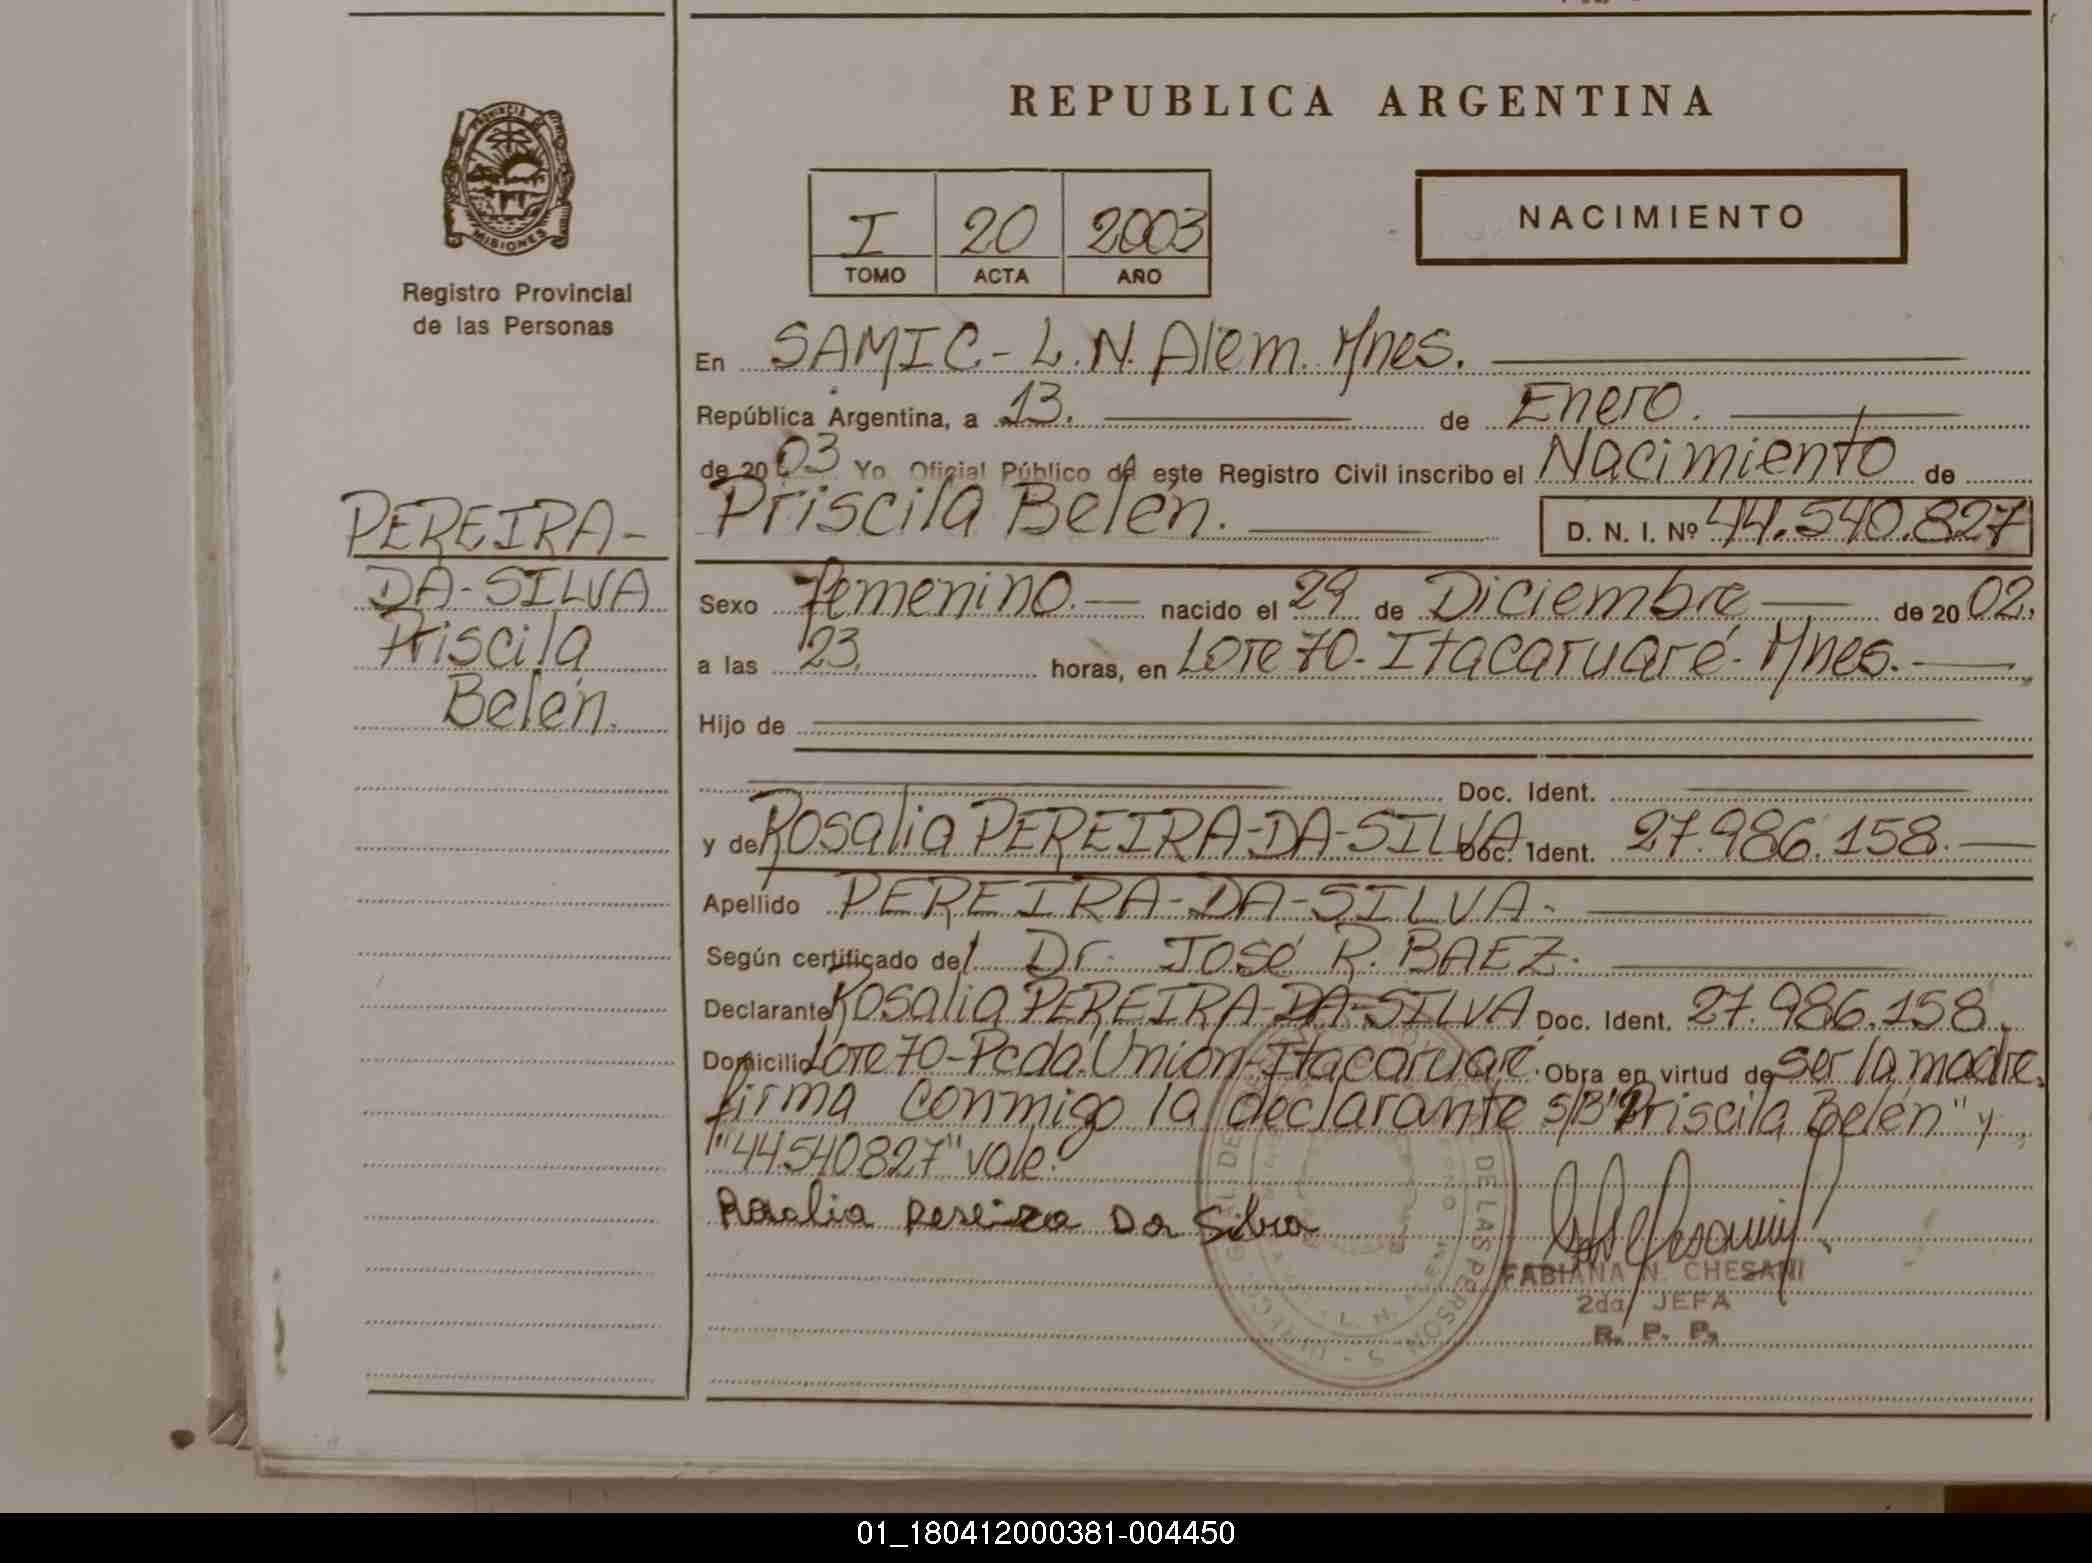 REPUBLICA ARGENTINA
PROVINCIA DE
MISIONES
Registro Provincial
de las Personas
I 20 2003
TOMO ACTA AÑO
NACIMIENTO
En SAMIC - L.N. Alem. Mnes.
República Argentina, a 13. de Enero.
de 20 03 Yo Oficial Público de este Registro Civil inscribo el Nacimiento de
Priscila Belén. D. N. I. Nº 44.540.827
PEREIRA-
DA-SILVA
Priscila
Belén.
Sexo femenino.- nacido el 29 de Diciembre de 20 02.
a las 23. horas, en Lote 70- Itacaruaré- Mnes.
Hijo de
Doc. Ident.
y de Rosalia PEREIRA-DA-SILVA Doc. Ident. 27.986.158.
Apellido PEREIRA-DA-SILVA.
Según certificado del Dr. José R. BAEZ.
Declarante Rosalia PEREIRA-DA-SILVA Doc. Ident. 27.986.158.
Domicilio Lote 70-Pcda. Unión-Itacaruaré. Obra en virtud de ser la madre.
firma conmigo la declarante S/B "Priscila Belén" y
"44540827" vale.
Rosalia Pereira Da Silva
DE LAS PERSONAS
FABIANA N. CHESANI
2da JEFA
R. P. P.
01_180412000381-004450